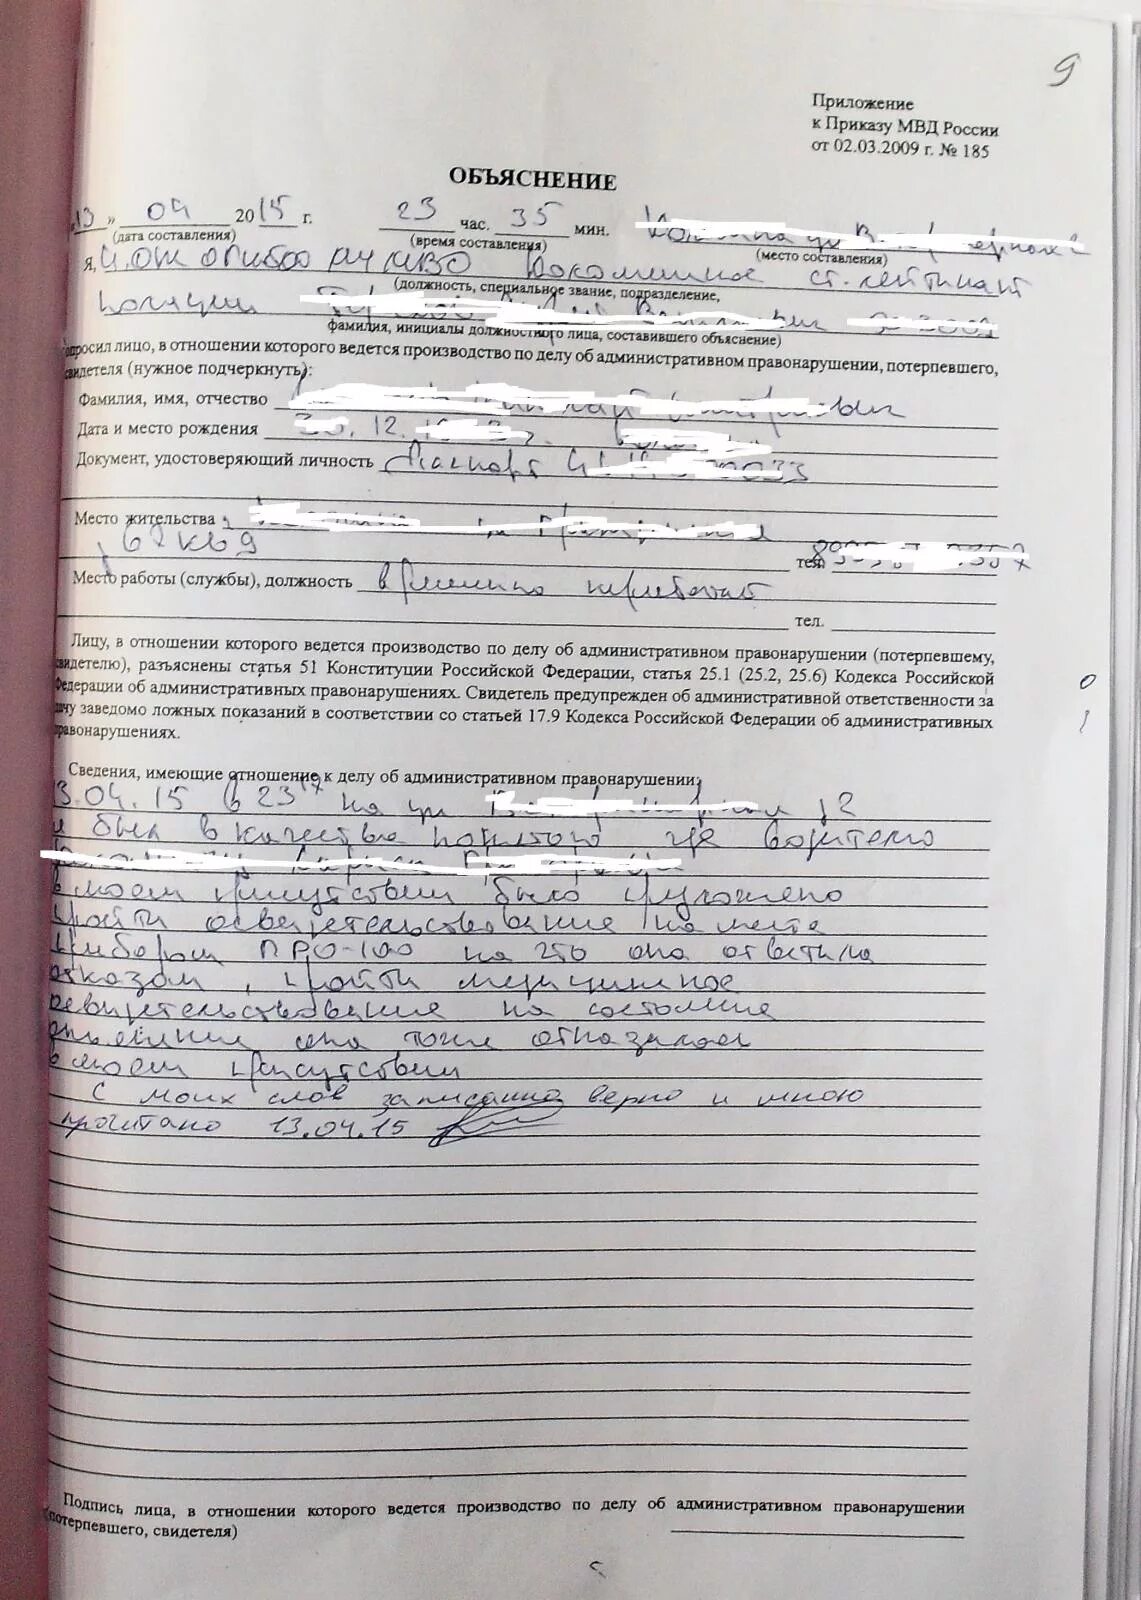 9
Приложение
к Приказу МВД России
от 02.03.2009 г. № 185
ОБЪЯСНЕНИЕ
13 » 04 2015 г. 23 час. 35 мин.
(дата составления) (время составления) (место составления)
Я, ст. лейтенант
(должность, специальное звание, подразделение,
полиции
фамилия, инициалы должностного лица, составившего объяснение)
опросил лицо, в отношении которого ведется производство по делу об административном правонарушении, потерпевшего,
свидетеля (нужное подчеркнуть):
Фамилия, имя, отчество
Дата и место рождения 12.
Документ, удостоверяющий личность Паспорт
Место жительства
67 кв 9 тел.
Место работы (службы), должность временно не работает
тел.
Лицу, в отношении которого ведется производство по делу об административном правонарушении (потерпевшему,
свидетелю), разъяснены статья 51 Конституции Российской Федерации, статья 25.1 (25.2, 25.6) Кодекса Российской
Федерации об административных правонарушениях. Свидетель предупрежден об административной ответственности за
дачу заведомо ложных показаний в соответствии со статьей 17.9 Кодекса Российской Федерации об административных
правонарушениях.
Сведения, имеющие отношение к делу об административном правонарушении:
13.04.15 в 23 17 на ул д2
я был в качестве понятого где водителю
в моем присутствии было предложено
пройти освидетельствование на месте
прибором ПРО-100 на что она ответила
отказом, пройти медицинское
освидетельствование на состояние
опьянения она тоже отказалась
в моем присутствии
С моих слов записанно верно и мною
прочитано 13.04.15
Подпись лица, в отношении которого ведется производство по делу об административном правонарушении
(потерпевшего, свидетеля)